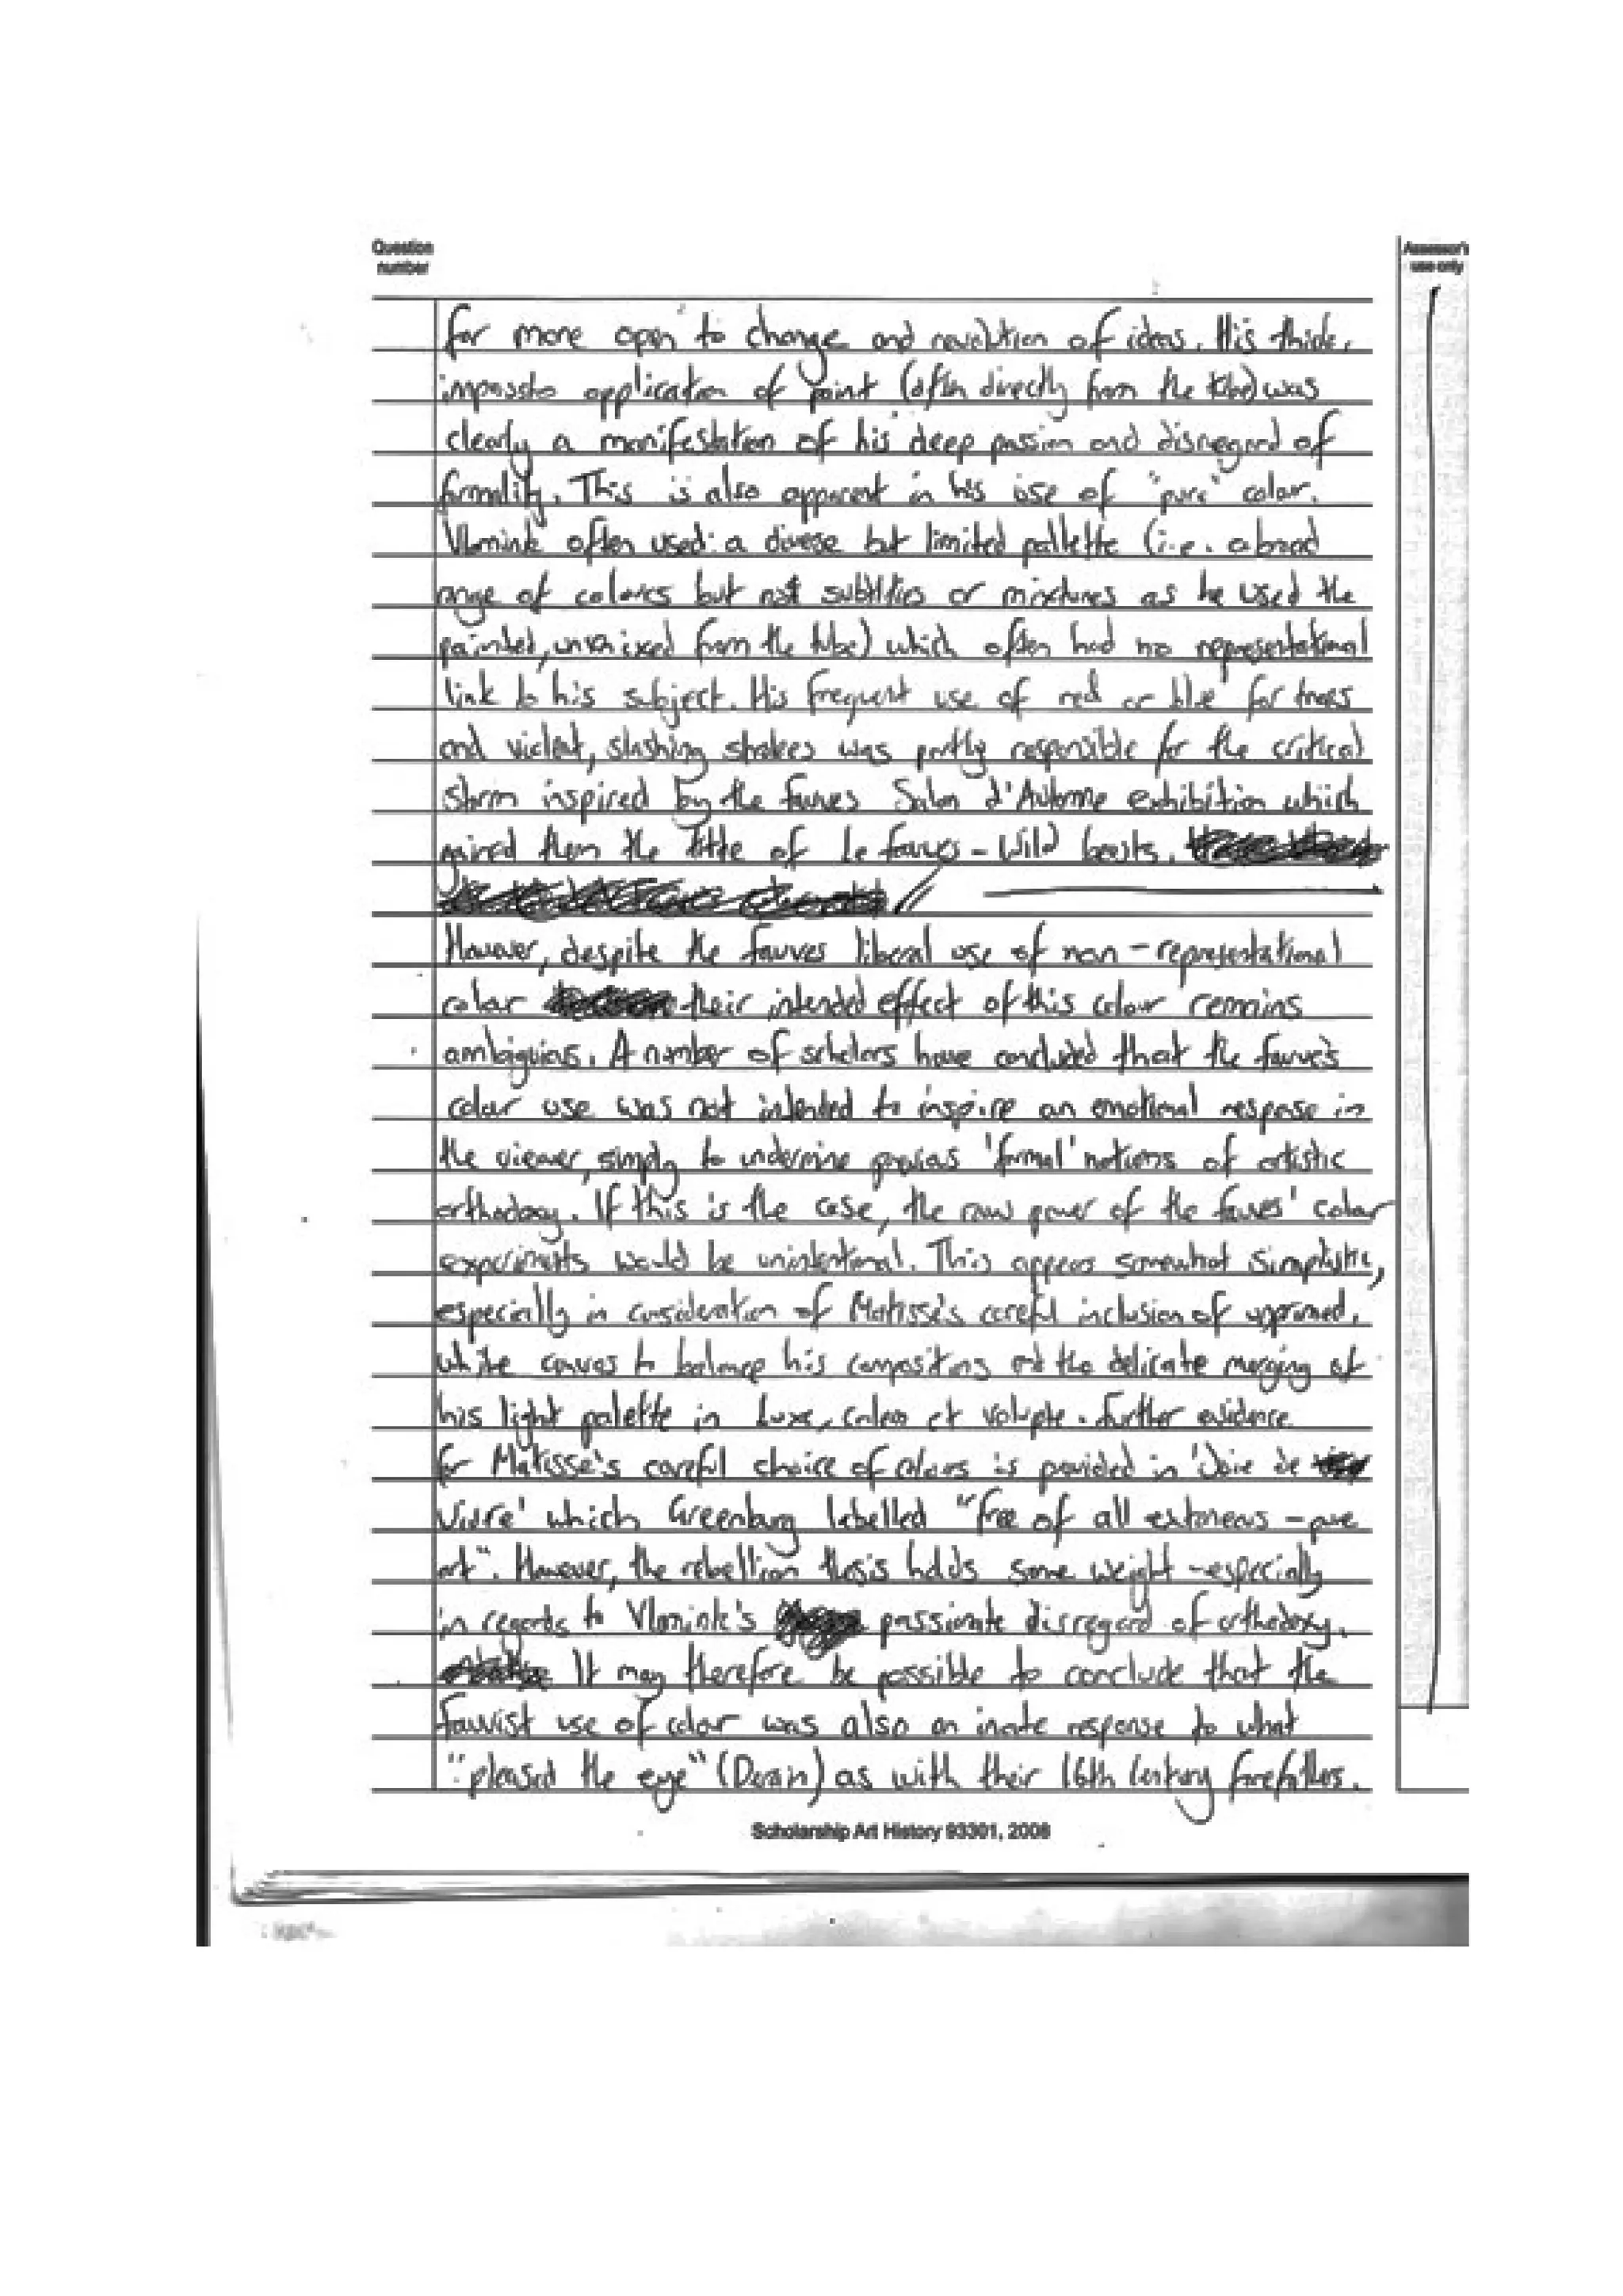 Question
number
Assessor's
use only
far more open to change and revolution of ideas. His thick,
impassto application of paint (often directly from the tube) was
clearly a manifestation of his deep passion and disregard of
formality. This is also apparent in his use of "pure" color.
Vlamink often used a diverse but limited pallette (i.e. a broad
range of colours but not subtlties or mixtures as he used the
painted, unmixed from the tube) which often had no representational
link to his subject. His frequent use of red or blue for trees
and violent, slashing strokes was partly responsible for the critical
storm inspired by the fauves Salon d'Automne exhibition which
gained them the title of Le fauves - Wild beasts.
However, despite the fauves liberal use of non-representational
colour their intended effect of this colour remains
ambiguias. A number of scholars have concluded that the fauve's
colour use was not intended to inspire an emotional response in
the viewer, simply to undermine previous 'formal' notions of artistic
orthodoxy. If this is the case, the raw power of the fauves' colour
experiments would be unintentional. This appears somewhat simplistic,
especially in consideration of Matisse's careful inclusion of unprimed,
white canvas to balance his compositions and the delicate merging of
his light palette in Luxe, calme et volupte. Further evidence
for Matisse's careful choice of colours is provided in 'Joie de
Vivre' which Greenburg labelled "free of all extraneous - pure
art". However, the rebellion thesis holds some weight - especially
in regards to Vlamink's passionate disregard of orthodoxy.
It may therefore be possible to conclude that the
Fauvist use of colour was also an inate response to what
"pleased the eye" (Derain) as with their 16th Century forefathers.
Scholarship Art History 93301, 2008